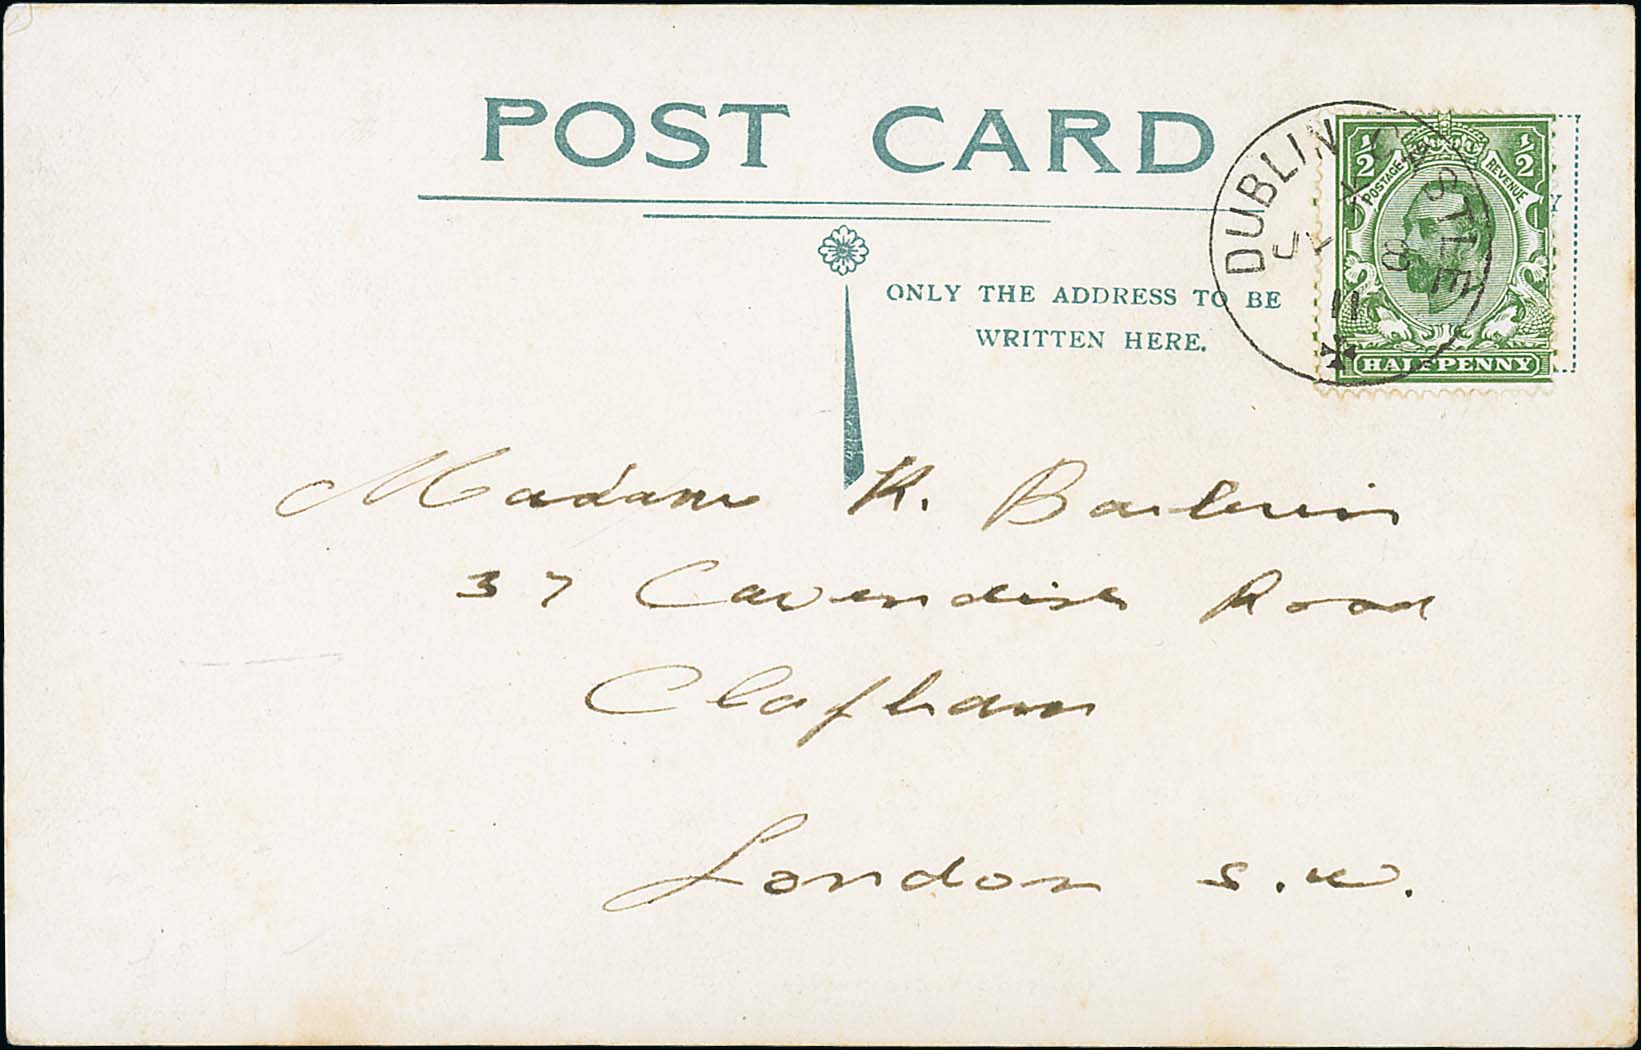 POST CARD
ONLY THE ADDRESS TO BE
WRITTEN HERE.
DUBLIN CASTLE
JY
8
11
½ ½
POSTAGE REVENUE
HALFPENNY
Madam K.
37 Cavendish Road
Clapham
London S.W.